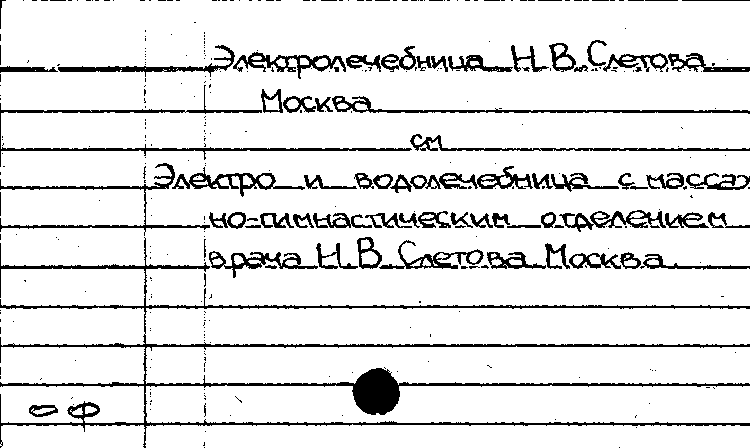 Электролечебница Н.В. Слетова.
Москва
см
Электро и водолечебница с массаж
но-гимнастическим отделением
врача Н.В. Слетова. Москва.